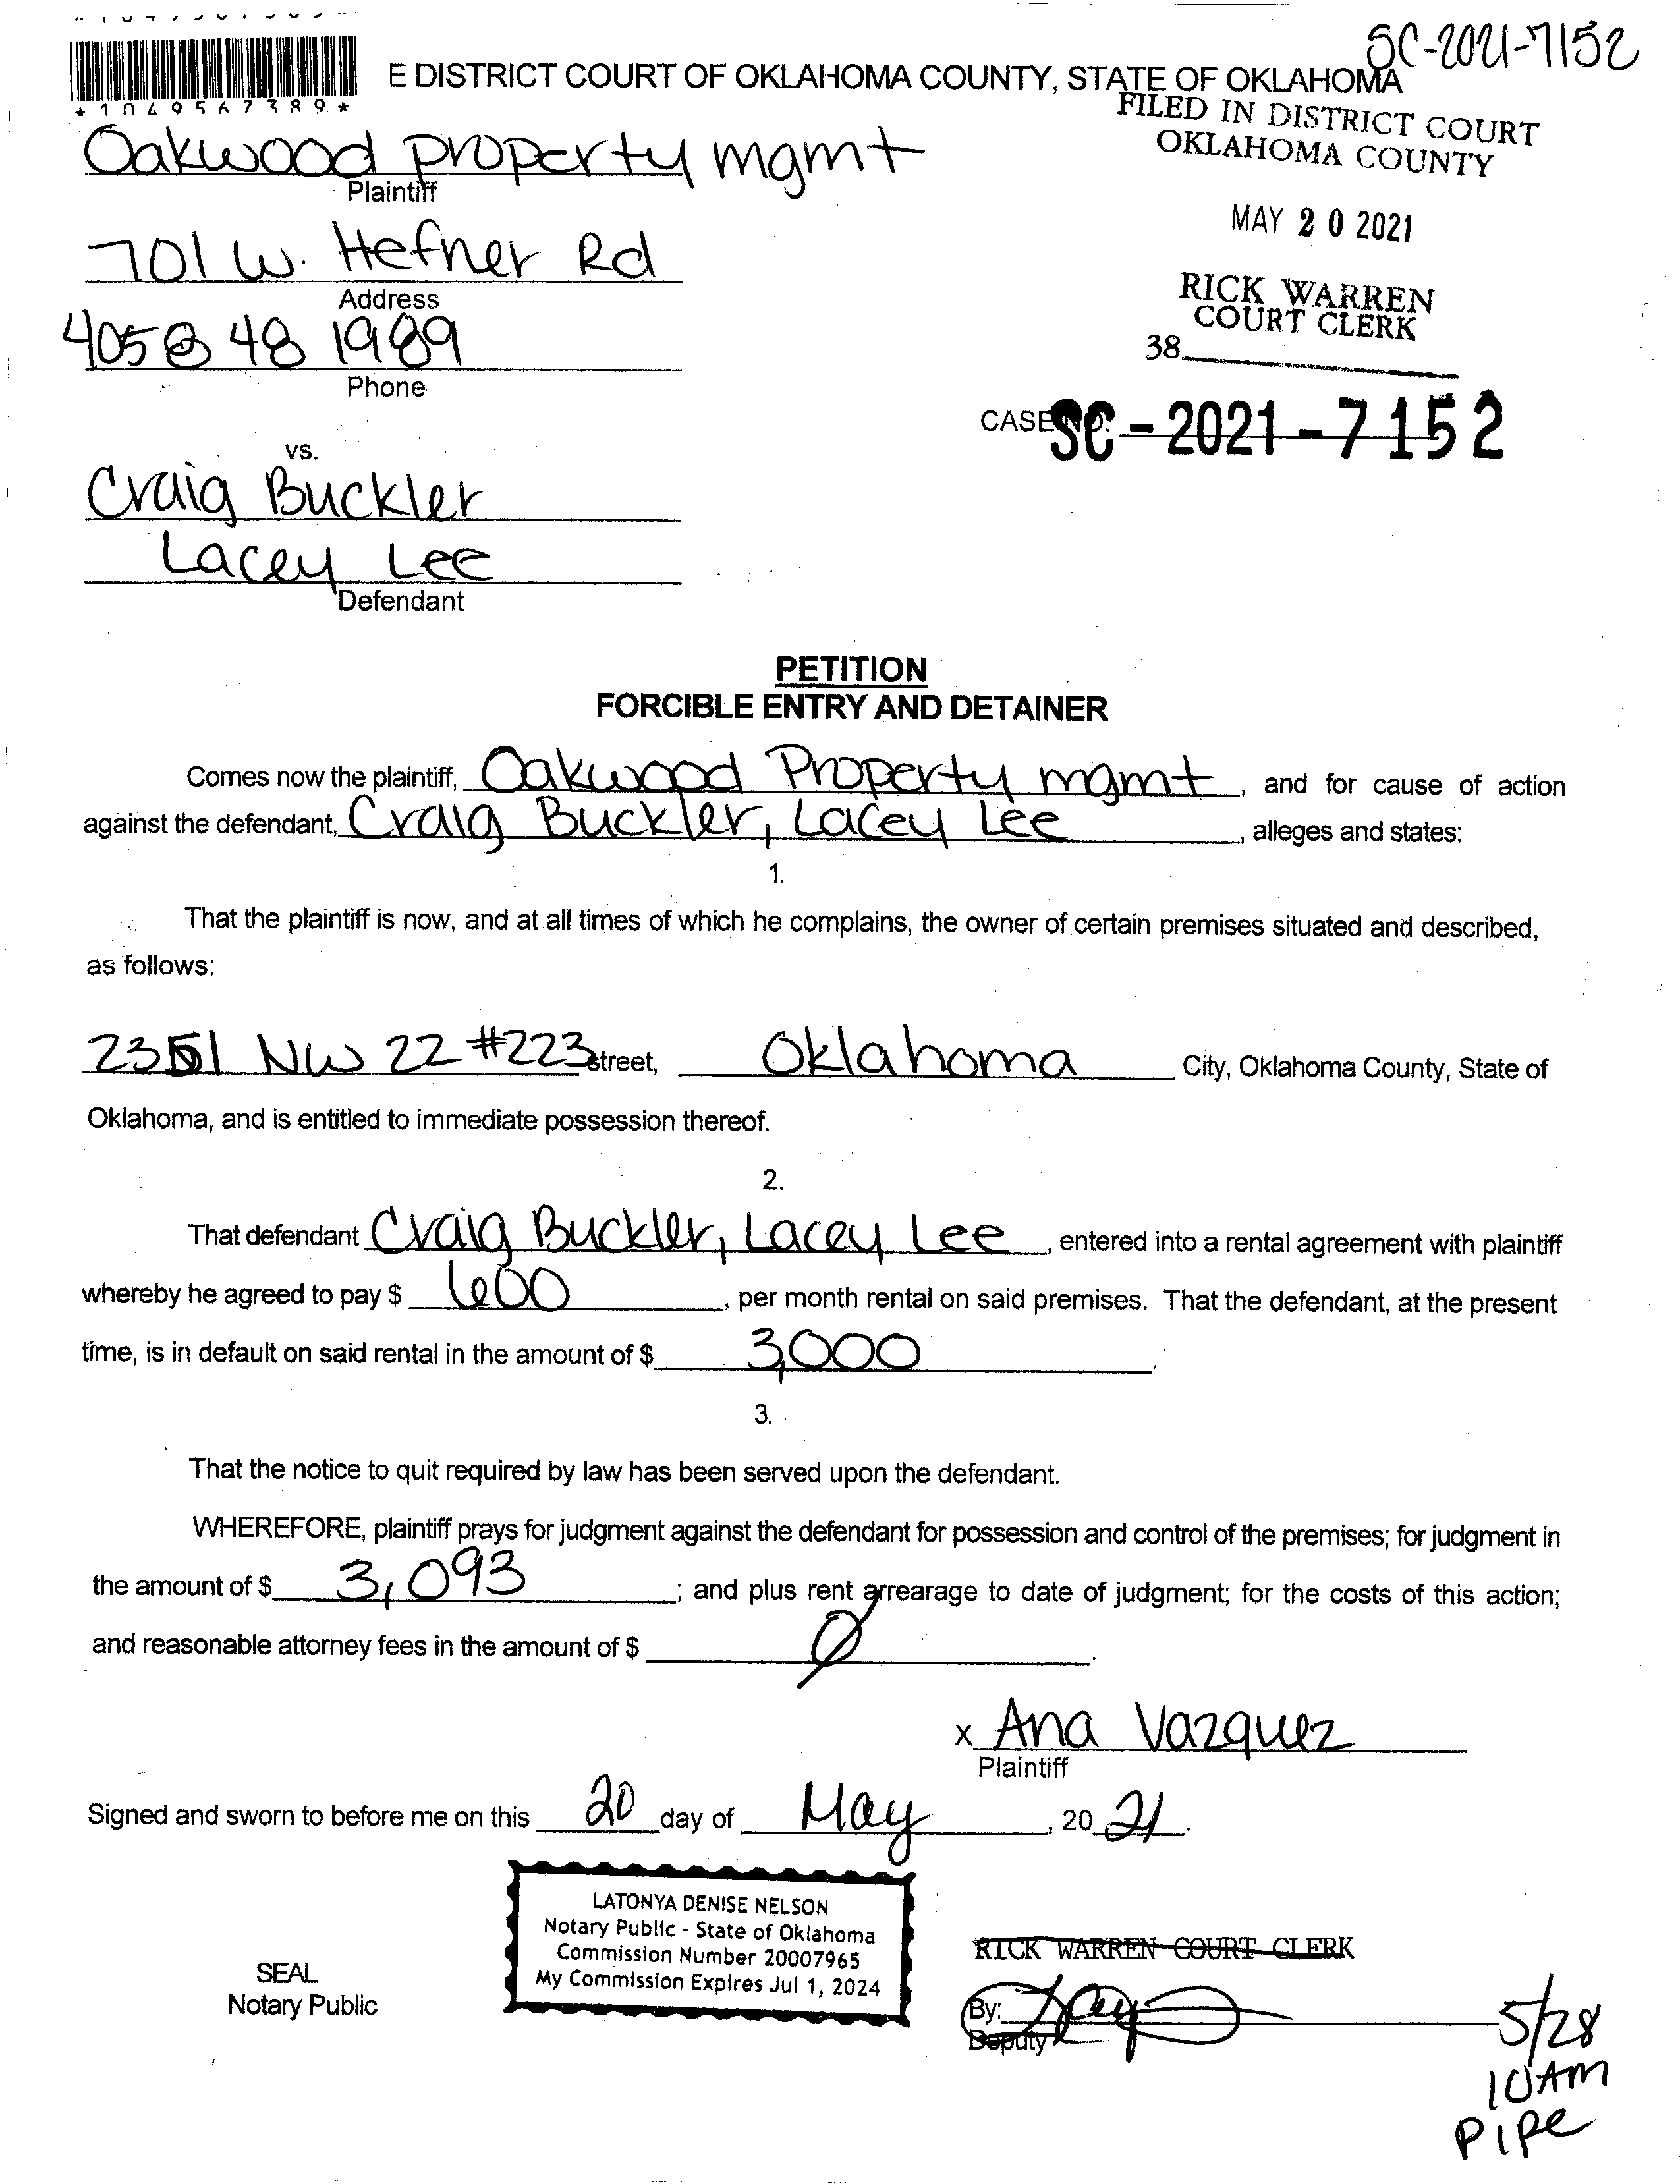 SC-2021-7152
E DISTRICT COURT OF OKLAHOMA COUNTY, STATE OF OKLAHOMA
*1049567389*
FILED IN DISTRICT COURT
OKLAHOMA COUNTY
Oakwood property mgmt
Plaintiff
MAY 20 2021
701 W. Hefner Rd
Address
RICK WARREN
COURT CLERK
38
405 848 1989
Phone
CASE NO. SC-2021-7152
vs.
Craig Buckler
Lacey Lee
Defendant
PETITION
FORCIBLE ENTRY AND DETAINER
Comes now the plaintiff, Oakwood Property mgmt, and for cause of action
against the defendant, Craig Buckler, Lacey Lee, alleges and states:
1.
That the plaintiff is now, and at all times of which he complains, the owner of certain premises situated and described,
as follows:
2351 NW 22 #223 street, Oklahoma City, Oklahoma County, State of
Oklahoma, and is entitled to immediate possession thereof.
2.
That defendant Craig Buckler, Lacey Lee, entered into a rental agreement with plaintiff
whereby he agreed to pay $ 600, per month rental on said premises. That the defendant, at the present
time, is in default on said rental in the amount of $ 3,000.
3.
That the notice to quit required by law has been served upon the defendant.
WHEREFORE, plaintiff prays for judgment against the defendant for possession and control of the premises; for judgment in
the amount of $ 3,093; and plus rent arrearage to date of judgment; for the costs of this action;
and reasonable attorney fees in the amount of $ Ø.
x Ana Vazquez
Plaintiff
Signed and sworn to before me on this 20 day of May, 2021.
LATONYA DENISE NELSON
Notary Public - State of Oklahoma
Commission Number 20007965
My Commission Expires Jul 1, 2024
SEAL
Notary Public
RICK WARREN COURT CLERK
By:
Deputy
5/28
10AM
Pipe